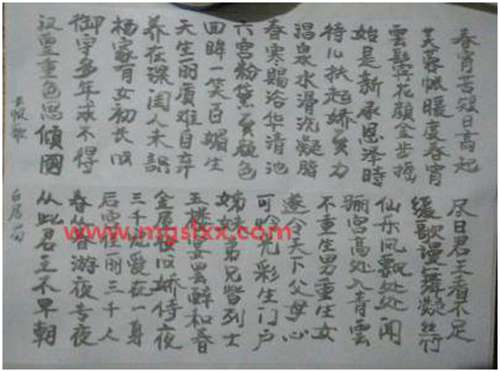 長恨歌
汉皇重色思倾國
御宇多年求不得
杨家有女初长成
养在深闺人未識
天生丽质难自弃
回眸一笑百媚生
六宫粉黛無颜色
春寒賜浴华清池
温泉水滑洗凝脂
侍儿扶起娇無力
始是新承恩泽時
雲鬓花颜金步摇
芙蓉帐暖度春宵
春宵苦短日高起
白居易
从此君王不早朝
春从春游夜专夜
后宫佳丽三千人
三千宠爱在一身
金屋妆成娇侍夜
玉楼宴罢醉和春
姊妹弟兄皆列士
可怜光彩生门户
遂令天下父母心
不重生男重生女
骊宫高处入青雲
仙乐风飘处处闻
缓歌谩舞凝丝竹
尽日君王看不足
www.mgslxx.com